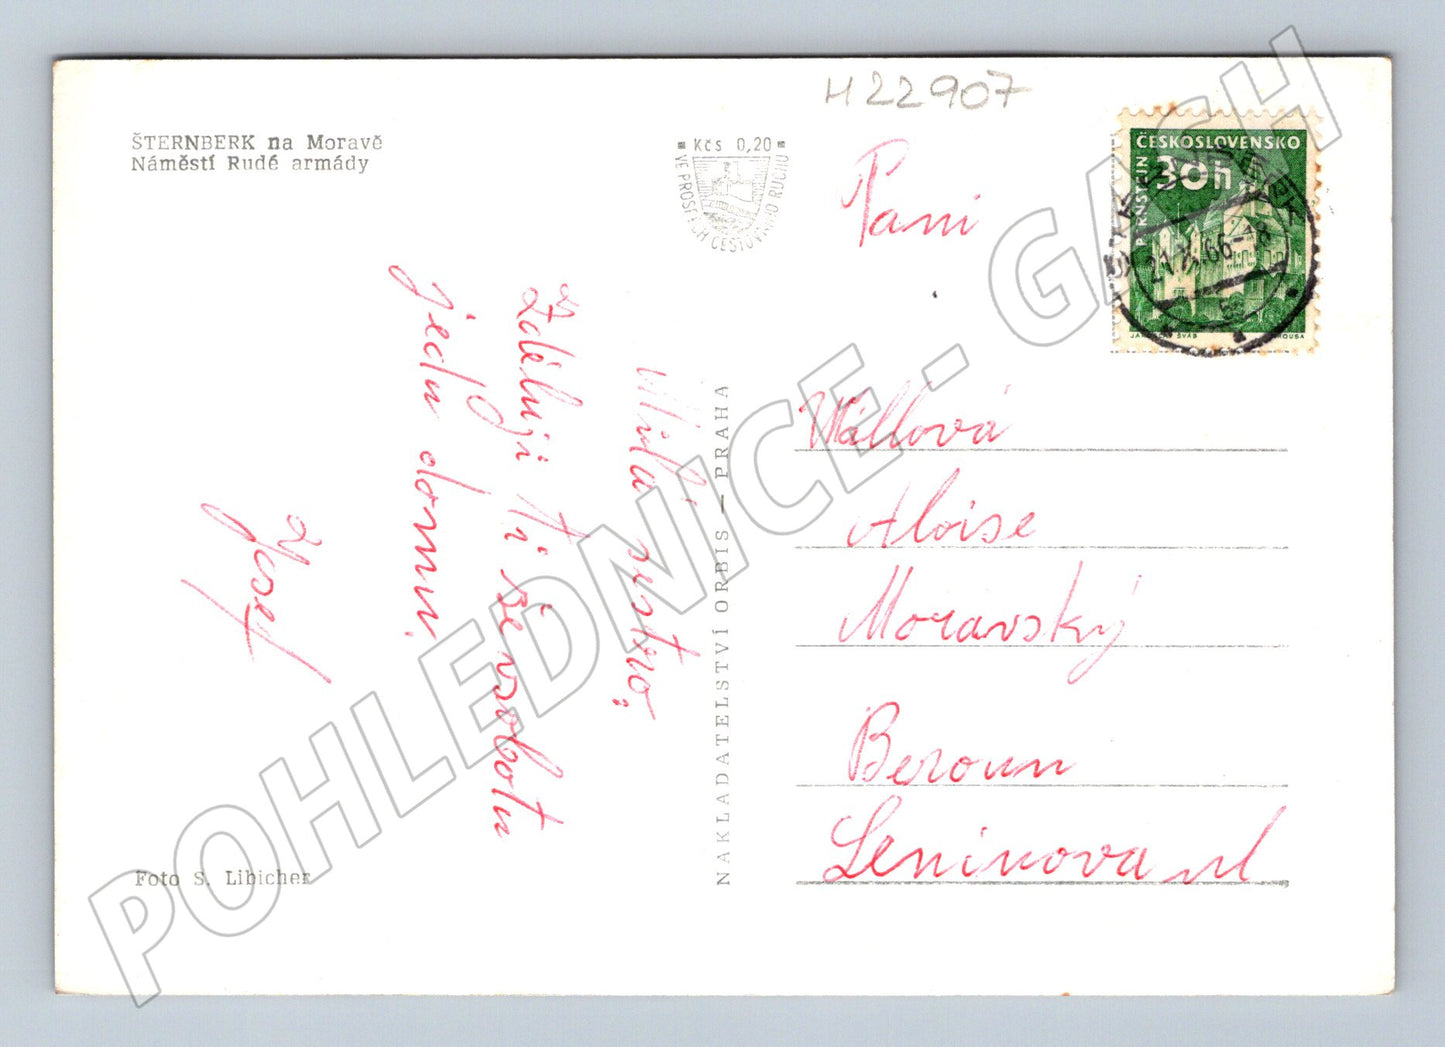 H22907
ŠTERNBERK na Moravě
Náměstí Rudé armády
Kčs 0,20
VE PROSPĚCH CESTOVNÍHO RUCHU
ČESKOSLOVENSKO
30h
PERNŠTEJN
ŠVÁB
ŠTERNBERK
66-18
Milá sestro,
Zděluji ti že v sobotu
jedu domu.
Josef
NAKLADATELSTVÍ ORBIS — PRAHA
Paní
Aloise
Moravský
Beroun
Leninova ul
Foto S. Libicher
POHLEDNICE - GASH